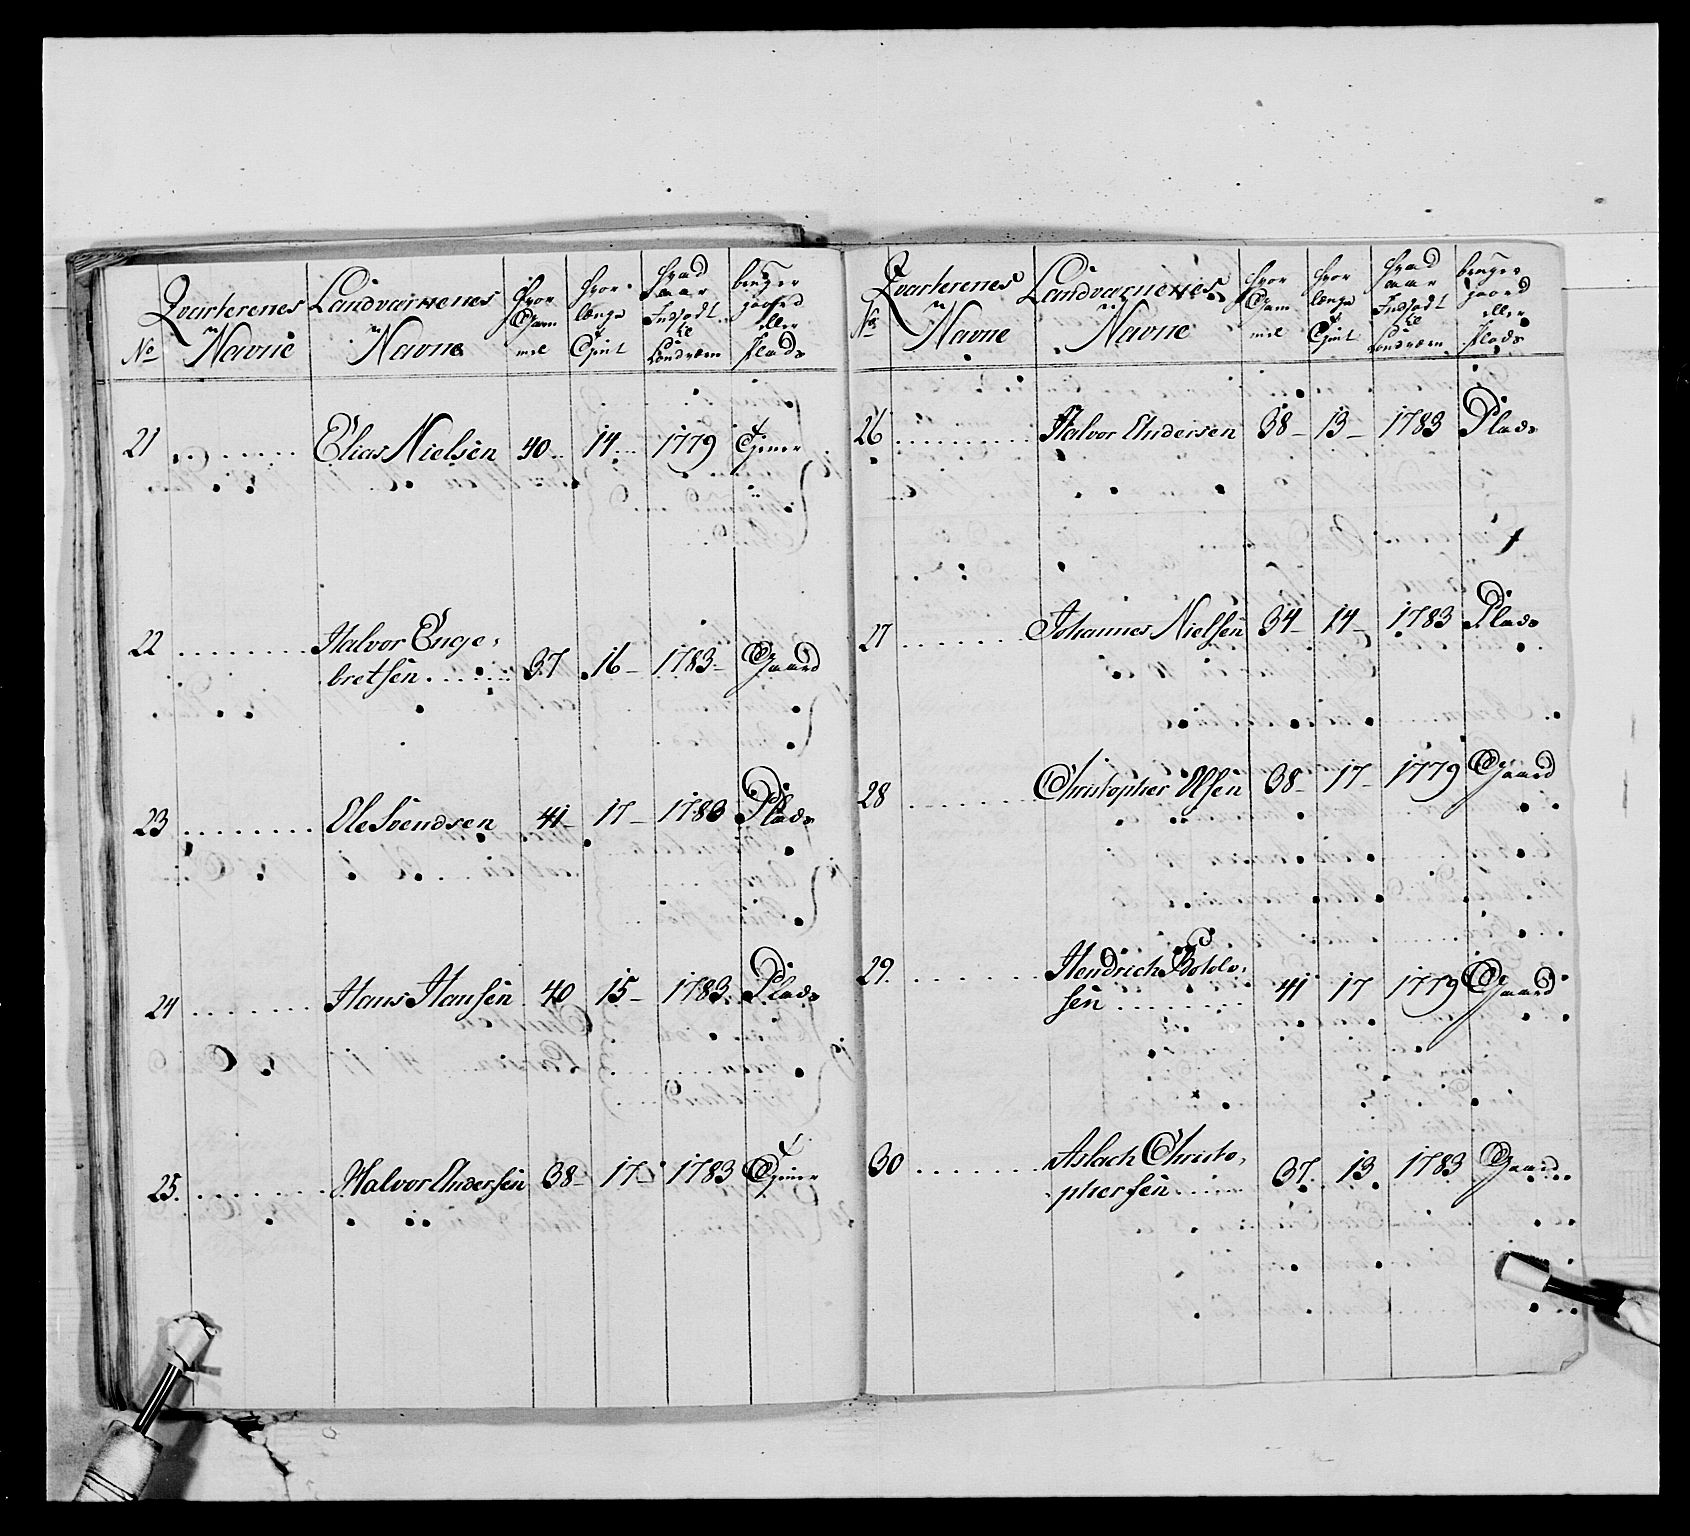 No Qvarterenes Navne Landvernenes Navne hvor Gammel hvor længe Tjent hvad aar Indsadt til Landværn bruger gaard eller Plads
21 Elias Nielsen 40 14 1779 Tjener
22 Halvor Enge-
bretsen 37 16 1783 Gaard
23 Ole Svendsen 41 17 1783 Plads
24 Hans Hansen 40 15 1783 Plads
25. Halvor Andersen 38 17 1783 Tjener
No Qvarterenes Navne Landvernenes Navne hvor Gammel hvor længe Tjent hvad aar Indsadt til Landværn bruger gaard eller Plads
26 Halvor Andersen 38 13 1783 Plads
27 Johannes Nielsen 34 14 1783 Plads
28 Christopher Olsen 38 17 1779 Gaard
29. Hendrich Botolv-
sen 41 17 1779 Gaard
30 Aslach Christo-
phersen 37 13 1783 Gaard